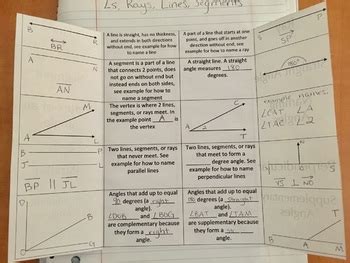 ∠s, Rays, Lines, Segments
B
R
BR
A line is straight, has no thickness,
and extends in both directions
without end, see example for how
to name a line
A part of a line that starts at one
point, and goes off in another
direction without end, see
example for how to name a ray
S
P
SP
A
N
AN
A segment is a part of a line
that connects 2 points, does
not go on without end but
instead ends on both sides,
see example for how to
name a segment
A straight line. A straight
angle measures 180
degrees.
180°
M
A
The vertex is where 2 lines,
segments, or rays meet. In
the example point A is
the vertex
C
A
2
T
example names:
∠CAT
∠A
∠TAC
∠2
B
P
J
L
BP || JL
Two lines, segments, or rays
that never meet. See
example for how to name
parallel lines
Two lines, segments, or rays
that meet to form a
degree angle. See
example for how to name
perpendicular lines
S
YS ⊥ NO
D
B
G
Angles that add up to equal
90 degrees (a right
angle).
∠DUB and ∠BUG
are complementary because
they form a right
angle.
Angles that add up to equal
180 degrees (a straight
angle).
∠BAT and ∠TAM
are supplementary because
they form a
angle.
T
B
A
M